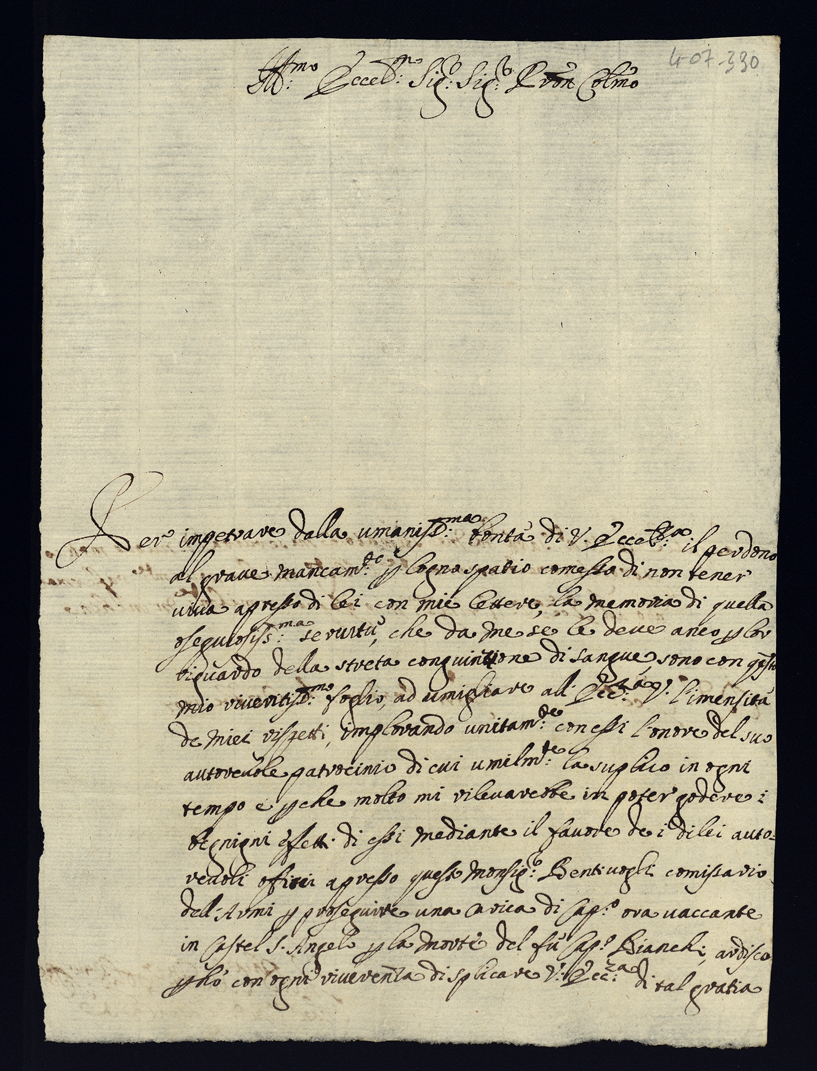 407-390
Ill:mo Eccel:mo Sig:r Sig:r Pron Colmo
Per impetrare dalla umaniss:ma bontà di V: Eccel:za il perdono
al grave mancam:to p longo spatio comesso di non tener
viva apresso di lei con mie lettere, la memoria di quella
osequiosiss:ma servitù, che da me se le deve anco p lor
riguardo della streta conguintione di sangue, sono con questo
mio riverentiss:mo foglio, ad umigliare all: Ecc:za V: l'imensità
de miei rispetti, implorando unitam:te con essi l'onore del suo
autorevole patrocinio di cui umilm:te la suplico in ogni
tempo e p che molto mi rilevarebbe in poter godere i
begnigni effetti di essi mediante il favore de i di lei auto-
revoli offitii apresso questo Monsig:r Bentivogli comissario
dell: Armi p proseguire una carica di Cap:o ora vaccante
in Castel S. Angelo p la morte del fù Cap:o Bianchi, ardisco
p hò con ogni riverenza di splicare V: Ecc:za di tal gratia